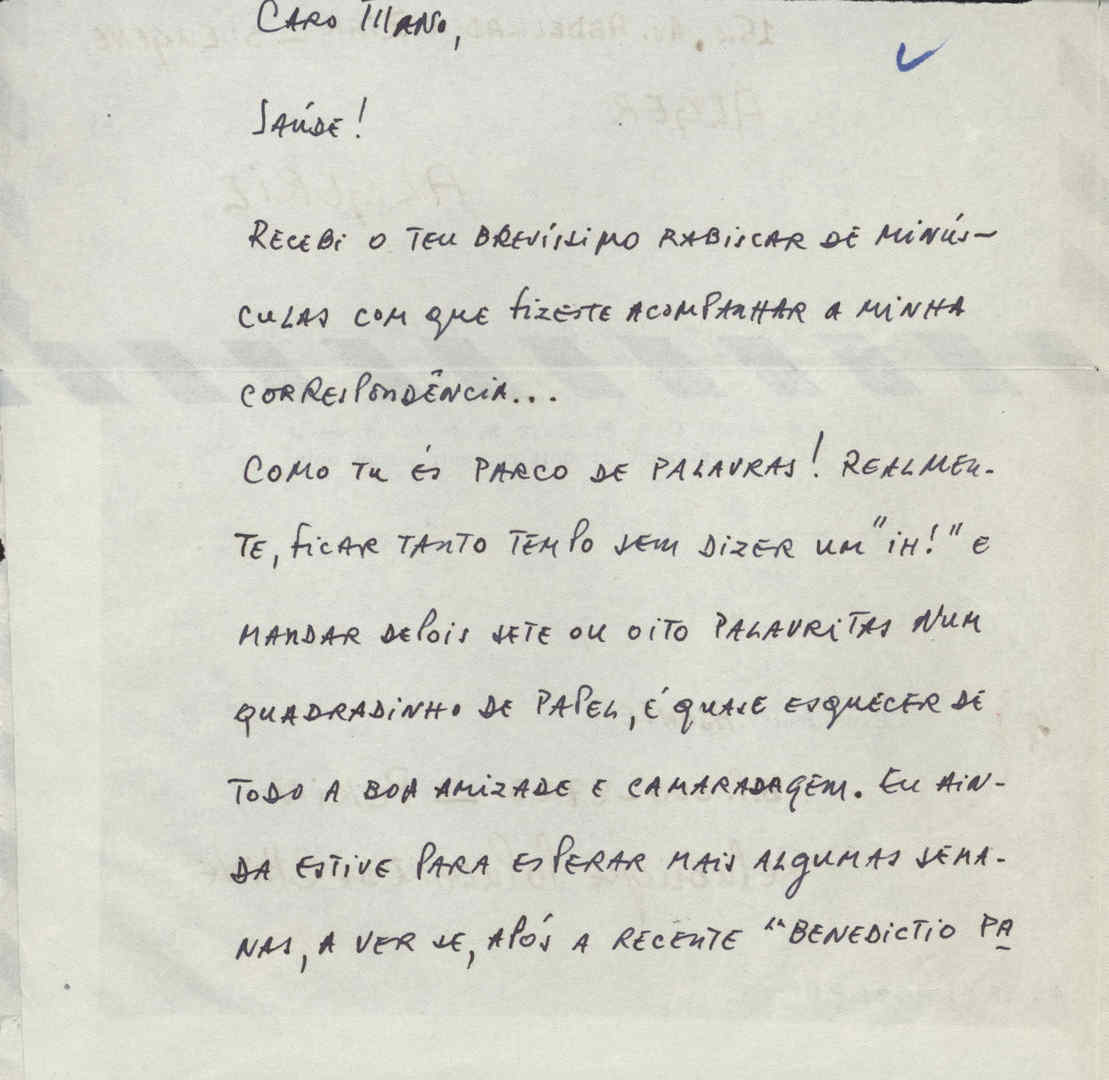 Caro Mano,
Saúde!
Recebi o teu brevíssimo rabiscar de minús-
culas com que fizeste acompanhar a minha
correspondência...
Como tu és parco de palavras! Realmen-
te, ficar tanto tempo sem dizer um "ih!" e
mandar depois sete ou oito palavritas num
quadradinho de papel, é quase esquecer de
todo a boa amizade e camaradagem. Eu ain-
da estive para esperar mais algumas sema-
nas, a ver se, após a recente "Benedictio Pa